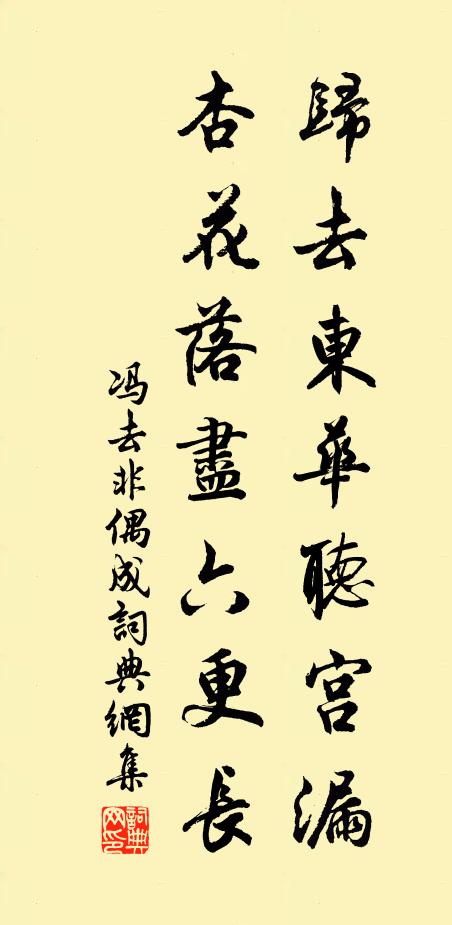 歸去東華聽宮漏
杏花落盡六更長
冯去非偶成詞典網集
詞典網印